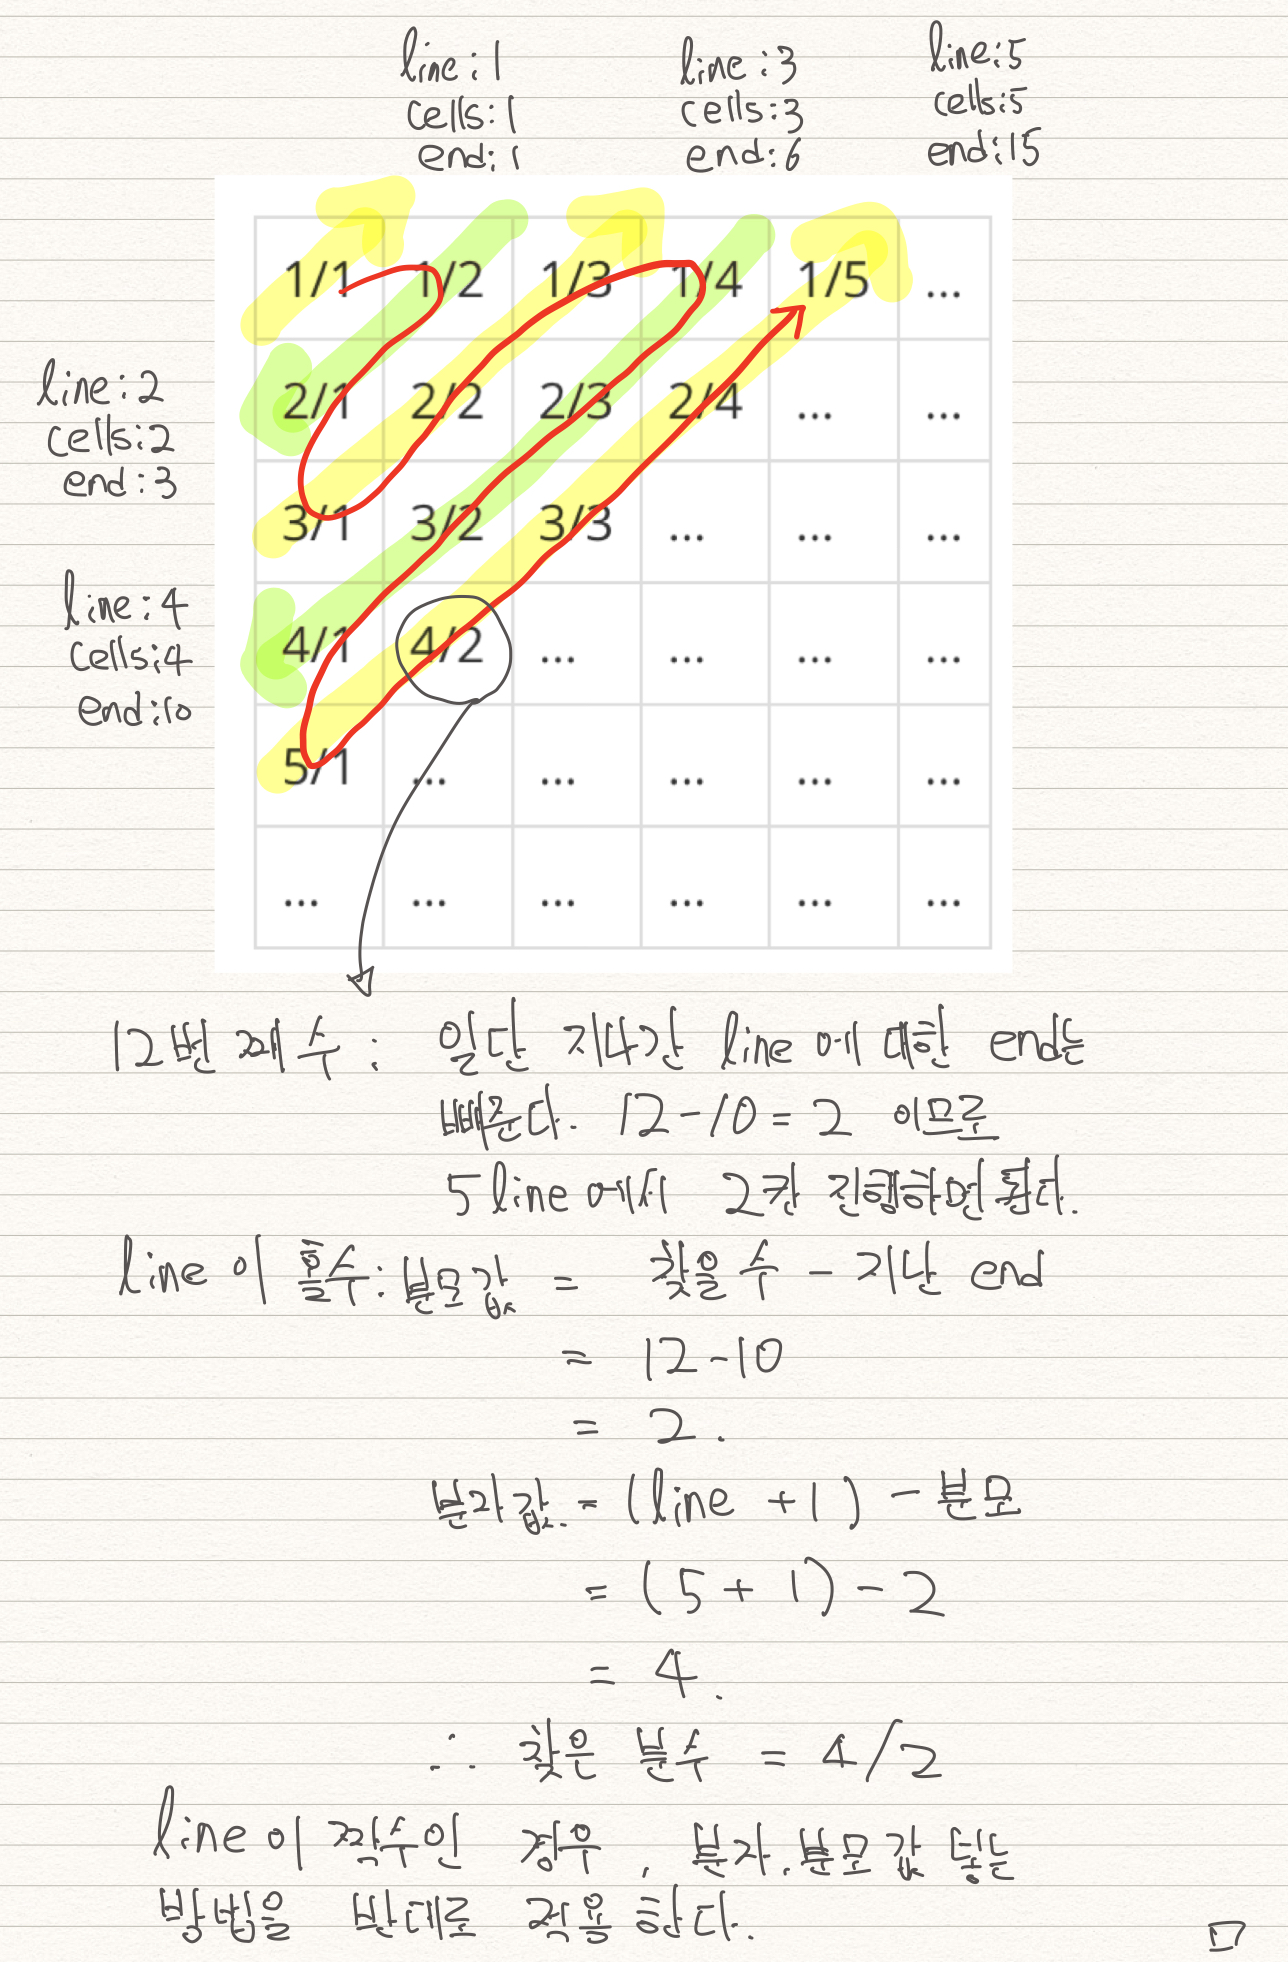 line:1
cells:1
end:1
line:3
cells:3
end:6
line:5
cells:5
end:15
1/1 1/2 1/3 1/4 1/5 ...
line:2
cells:2
end:3
2/1 2/2 2/3 2/4 ... ...
3/1 3/2 3/3 ... ... ...
line:4
cells:4
end:10
4/1 4/2 ... ... ... ...
5/1 ... ... ... ... ...
... ... ... ... ... ...
12번 째 수 : 일단 지나간 line에 대한 end는
빼준다. 12-10=2 이므로
5line에서 2칸 진행하면 된다.
line이 홀수: 분모값 = 찾을 수 - 지난 end
= 12-10
= 2.
분자값. = (line +1) - 분모
= (5+1)-2
= 4.
∴ 찾은 분수 = 4/2
line이 짝수인 경우, 분자.분모 값 놓는
방법을 반대로 적용한다.